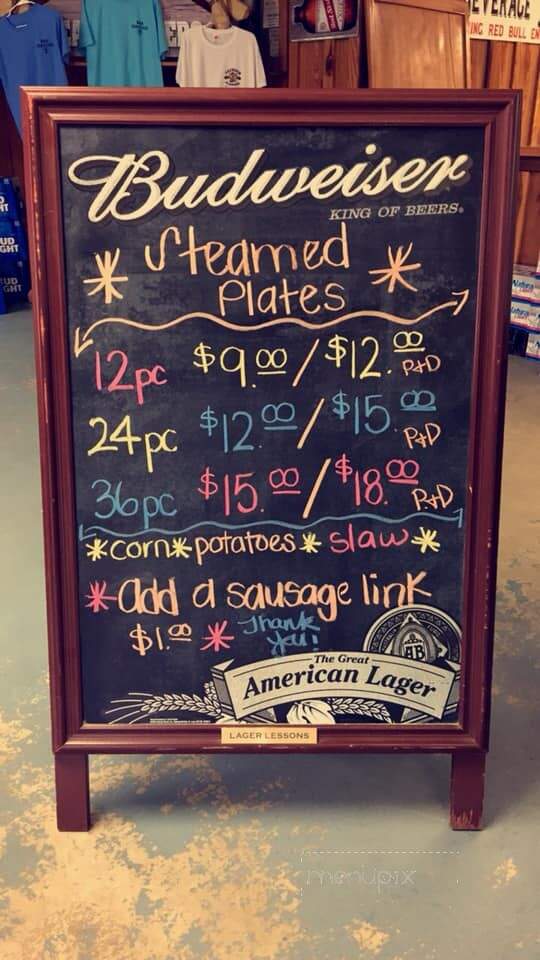 EVERAGE
ING RED BULL EN
Budweiser
KING OF BEERS®
* Steamed *
Plates
12pc $9.00 / $12.00 P+D
24pc $12.00 / $15.00 P+D
36pc $15.00 / $18.00 P+D
*corn* potatoes * slaw *
* add a sausage link
$1.00 * Thank
you!
AB
The Great
American Lager
LAGER LESSONS
UD
GHT
UD
GHT
Natura
menupix